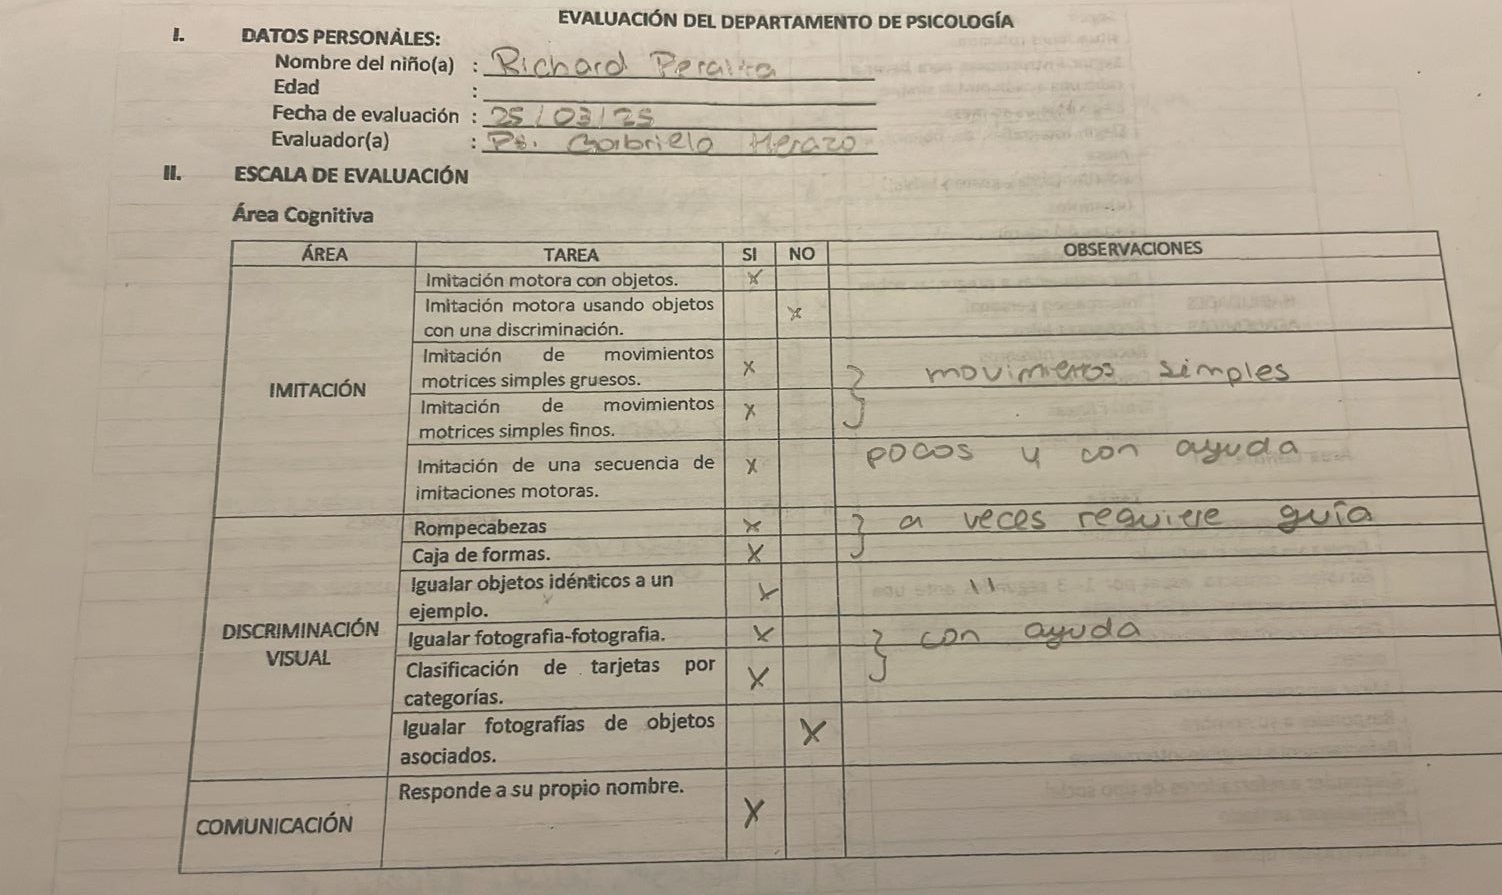 EVALUACIÓN DEL DEPARTAMENTO DE PSICOLOGÍA
I. DATOS PERSONALES:
Nombre del niño(a) : Richard Peralta
Edad :
Fecha de evaluación : 25/03/25
Evaluador(a) : Ps. Gabriela Herazo
II. ESCALA DE EVALUACIÓN
Área Cognitiva
ÁREA TAREA SI NO OBSERVACIONES
Imitación motora con objetos. X
Imitación motora usando objetos
con una discriminación. X
Imitación de movimientos
motrices simples gruesos. X } movimientos simples
IMITACIÓN
Imitación de movimientos
motrices simples finos. X
Imitación de una secuencia de X pocos y con ayuda
imitaciones motoras.
Rompecabezas X } a veces requiere guía
Caja de formas. X
Igualar objetos idénticos a un X "
ejemplo.
DISCRIMINACIÓN
VISUAL
Igualar fotografia-fotografia. X } con ayuda
Clasificación de tarjetas por X
categorías.
Igualar fotografías de objetos X
asociados.
Responde a su propio nombre. X
COMUNICACIÓN